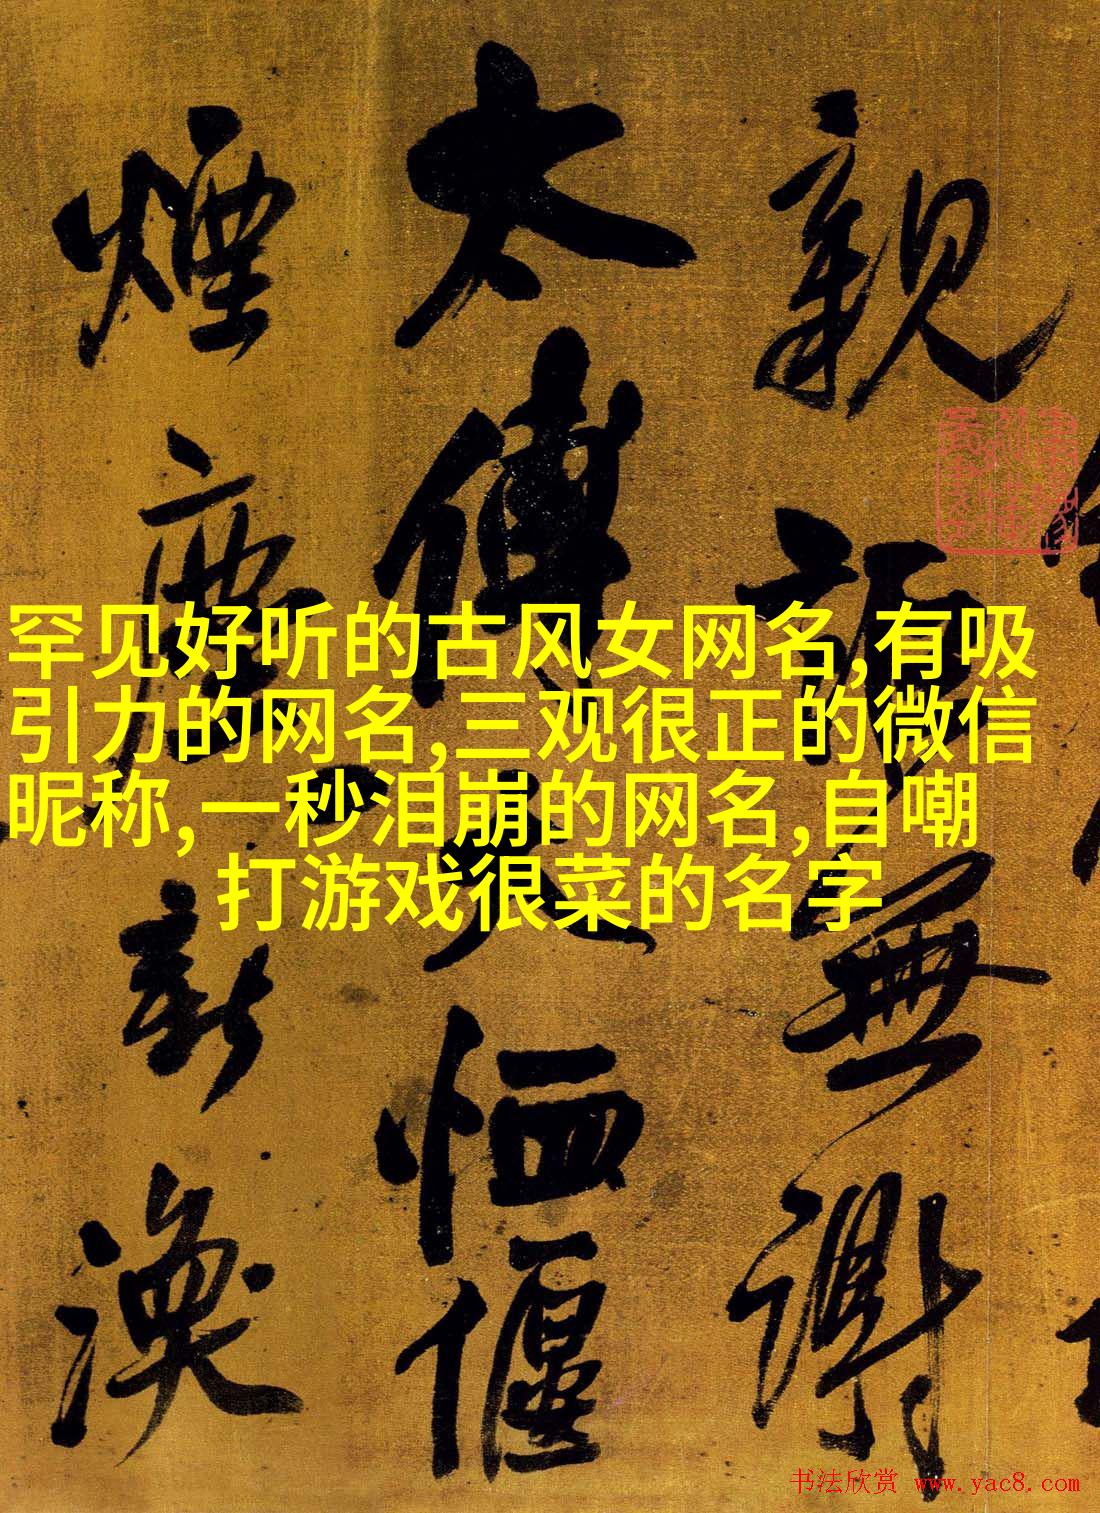 罕见好听的古风女网名,有吸
引力的网名,三观很正的微信
昵称,一秒泪崩的网名,自嘲
打游戏很菜的名字
親無謝
太傅恤偃
煙塵新渙
书法欣赏 www.yac8.com